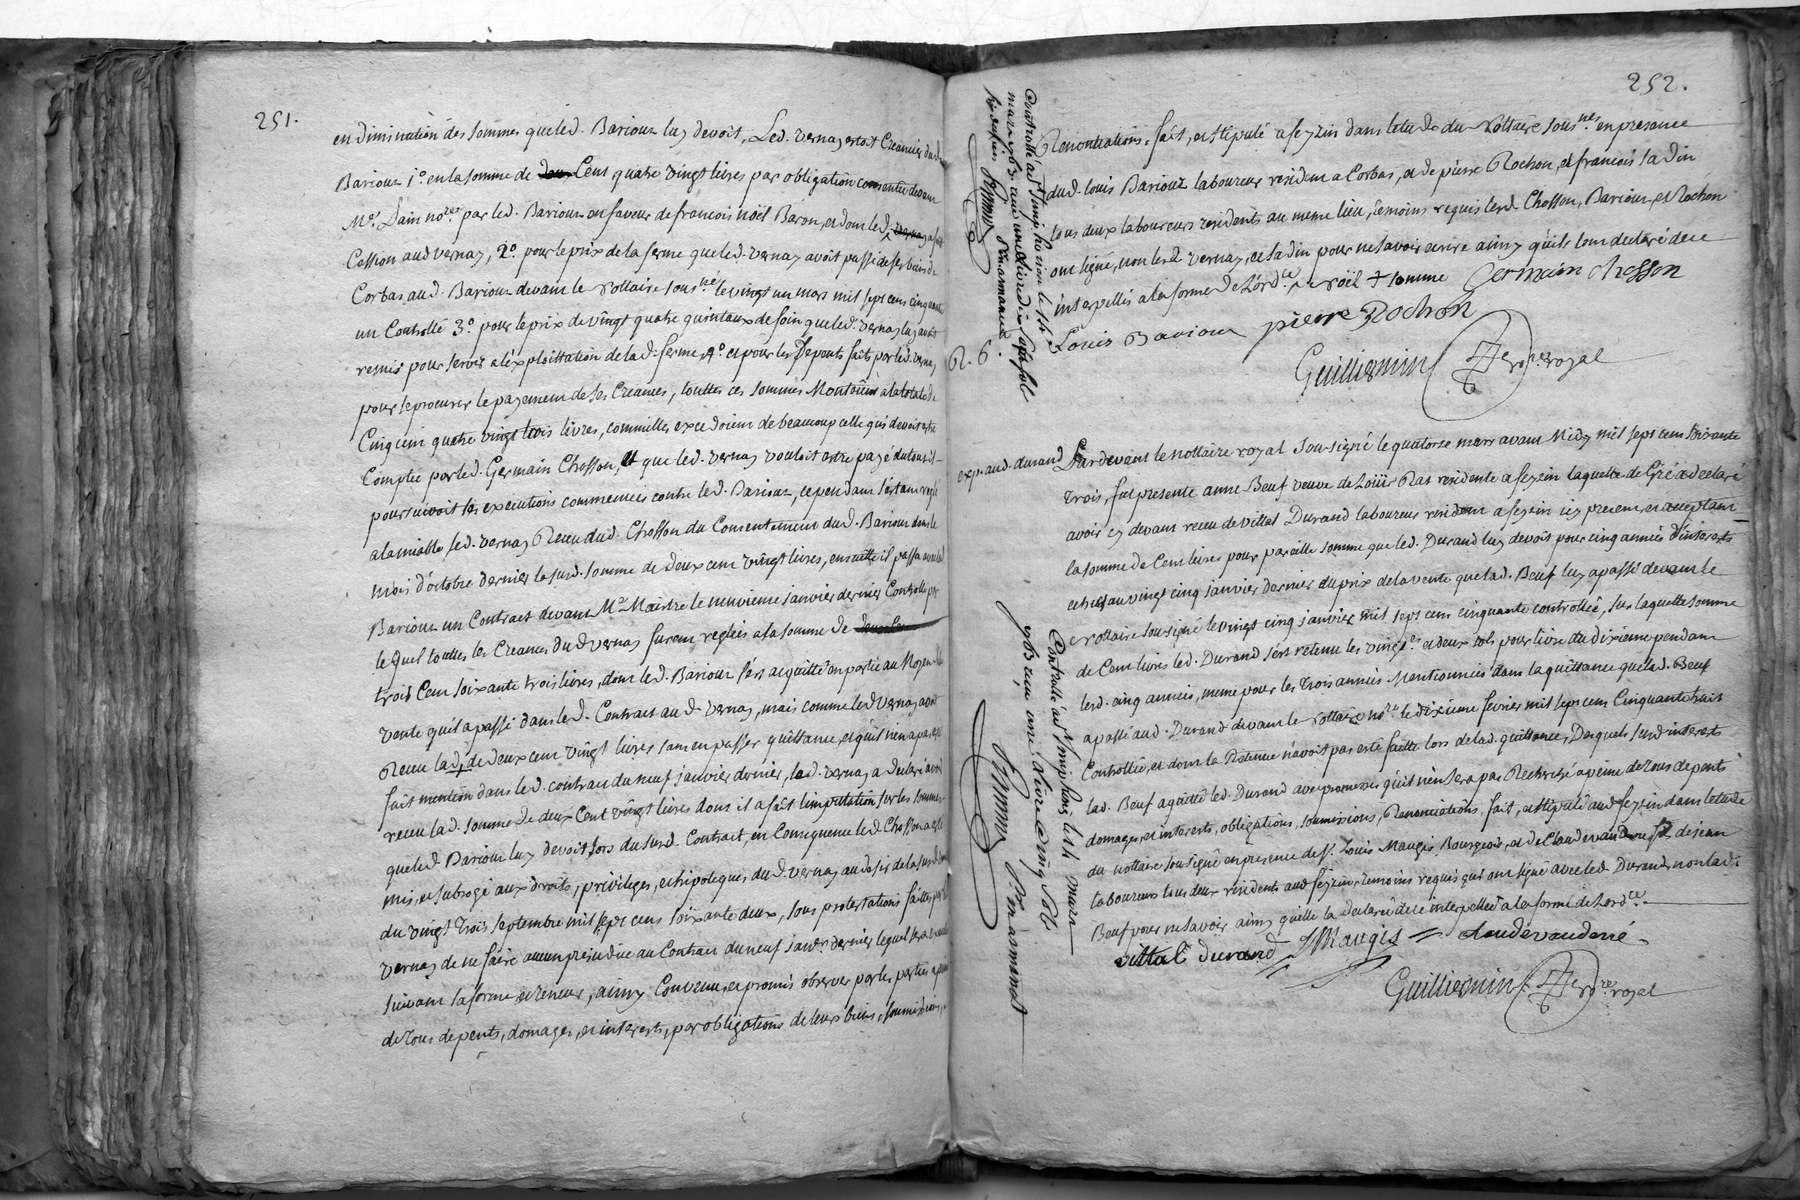 251.
en diminution des sommes que led. Barioux luy devoit, Led. vernay estoit Creancier dud.
Barioux 1o. en la somme de Cent quatre vingt livres par obligation consentie devant
Me. Dain nore. par led. Barioux en faveur de francois noël Baron, et dont led. a fait
Cession aud vernay, 2o. pour le prix de la ferme que led. vernay avoit passé de ses biens de
Corbas aud. Barioux devant le nottaire sousné. le vingt un mars mil sept cens cinquante
un Controllé 3o. pour le prix de vingt quatre quintaux de foin que led. vernay luy avoit
remis pour servir a l'exploittation de lad. ferme, 4o. et pour les Depents faits par led. vernay
pour se procurer le payement de ses Creances, touttes ces sommes Montoient a la totale de
Cinq cent quatre vingt trois livres, comme elles excedoient de beaucoup celle qui devoit estre
Comptée par led. Germain Chosson, et que led. vernay vouloit estre payé du tout il
poursuivoit les executions commencées contre led. Barioux, cependant s'estant reglé
a l'amiable led. vernay Receu dud. Chosson du Consentement dud. Barioux dans le
mois d'octobre dernier la susd. somme de deux cent vingt livres, ensuitte il passa avec led.
Barioux un Contract devant Me. Maistre le neuvieme janvier dernier Controllé par
lequel touttes les Creances dud vernay furent reglées a la somme de
trois Cent soixante trois livres, dont led. Barioux s'est acquitté en partie au Moyen de la
vente qu'il a passé dans led. Contract aud. vernay, mais comme led vernay avoit
Receu lad. de deux cent vingt livres sans en passer quittance, et qu'il n'en a pas esté
fait mention dans led. contract du neuf janvier dernier, led. vernay a declaré avoir
receu lad. somme de deux Cent vingt livres dont il a fait l'imputtation sur les sommes
que led Barioux luy devoit lors du susd. Contract, en Consequence led. Chosson a esté
mis, et subrogé aux droits, privileges, et hipoteques dud. vernay au desir de la susd.
du vingt trois septembre mil sept cens soixante deux, sous protestations faittes par led.
vernay de ne faire aucun prejudice au Contract du neuf janvr. dernier lequel sera executé
suivant sa forme, et teneur, ainsy Convenu, et promis observer par les parties a peine
de tous depents, domages, et interests, par obligations de leurs biens, soumissions,
252.
Renontiations, fait, et stipulé a feyzin dans l'etude du Nottaire sousnés. en presence
dud. Louis Barioux laboureur resident a Corbas, et de pierre Rochon, et francois Jadin
tous deux laboureurs residents au meme lieu, temoins requis led. Chosson, Barioux, et Rochon
ont signé, non led vernay, et Jadin pour ne savoir ecrire ainsy qu'ils l'ont declaré de ce
interpellés a la forme de L'ordce. noël + somme Germain chosson
Louis Barioux pierre Rochon
Guilliermin nore. royal
Controllé a St. Simphorien le 14
mars 1763. douze sols
R. 6.
exp. aud. durand Pardevant le nottaire royal Sousigné le quatorze mars avant Midy mil sept cens soixante
trois, fut presente anne Beuf veuve de Loüis Ras residente a feyzin laquelle de Gré a declaré
avoir cy devant receu de vittal Durand laboureur resident a feyzin icy present, et acceptant
la somme de Cent livres pour pareille somme que led. Durand luy devoit pour cinq années d'interests
echües au vingt cinq janvier dernier du prix de la vente que lad. Beuf luy a passé devant le
Nottaire sousigné le vingt cinq janvier mil sept cens cinquante controllée, sur laquelle somme
de Cent livres led. Durand s'est retenu les vingte. et deux sols pour livre du dixieme pendant
lesd. cinq années, meme pour les trois années Mentionnées dans la quittance que lad. Beuf
a passé aud. Durand devant le nottaire nore. le dixieme fevrier mil sept cens Cinquante huit
Controllée, et dont la Retenue n'avoit pas esté faitte lors de lad. quittance, Desquels susd interests
lad. Beuf a quitté led. Durand avec promesses qu'il n'en sera pas Recherché a peine de tous depents
domages, et interests, obligations, soumissions, Renontiations, fait, et stipulé aud feyzin dans letude
du nottaire sousigné en presence de sr. Louis Maugis Bourgeois, et de Claude vaudené fils de jean
laboureurs tous deux residents aud feyzin, temoins requis qui ont signé avec led Durand, non lad.
Beuf pour ne savoir ainsy qu'elle la declaré de ce interpellée a la forme de L'ordce.
vittal durand JMaugis claude vaudené
Guilliermin nore. royal
Controllé a St. Simphorien le 14 mars
1763 reçu une livre cinq sols